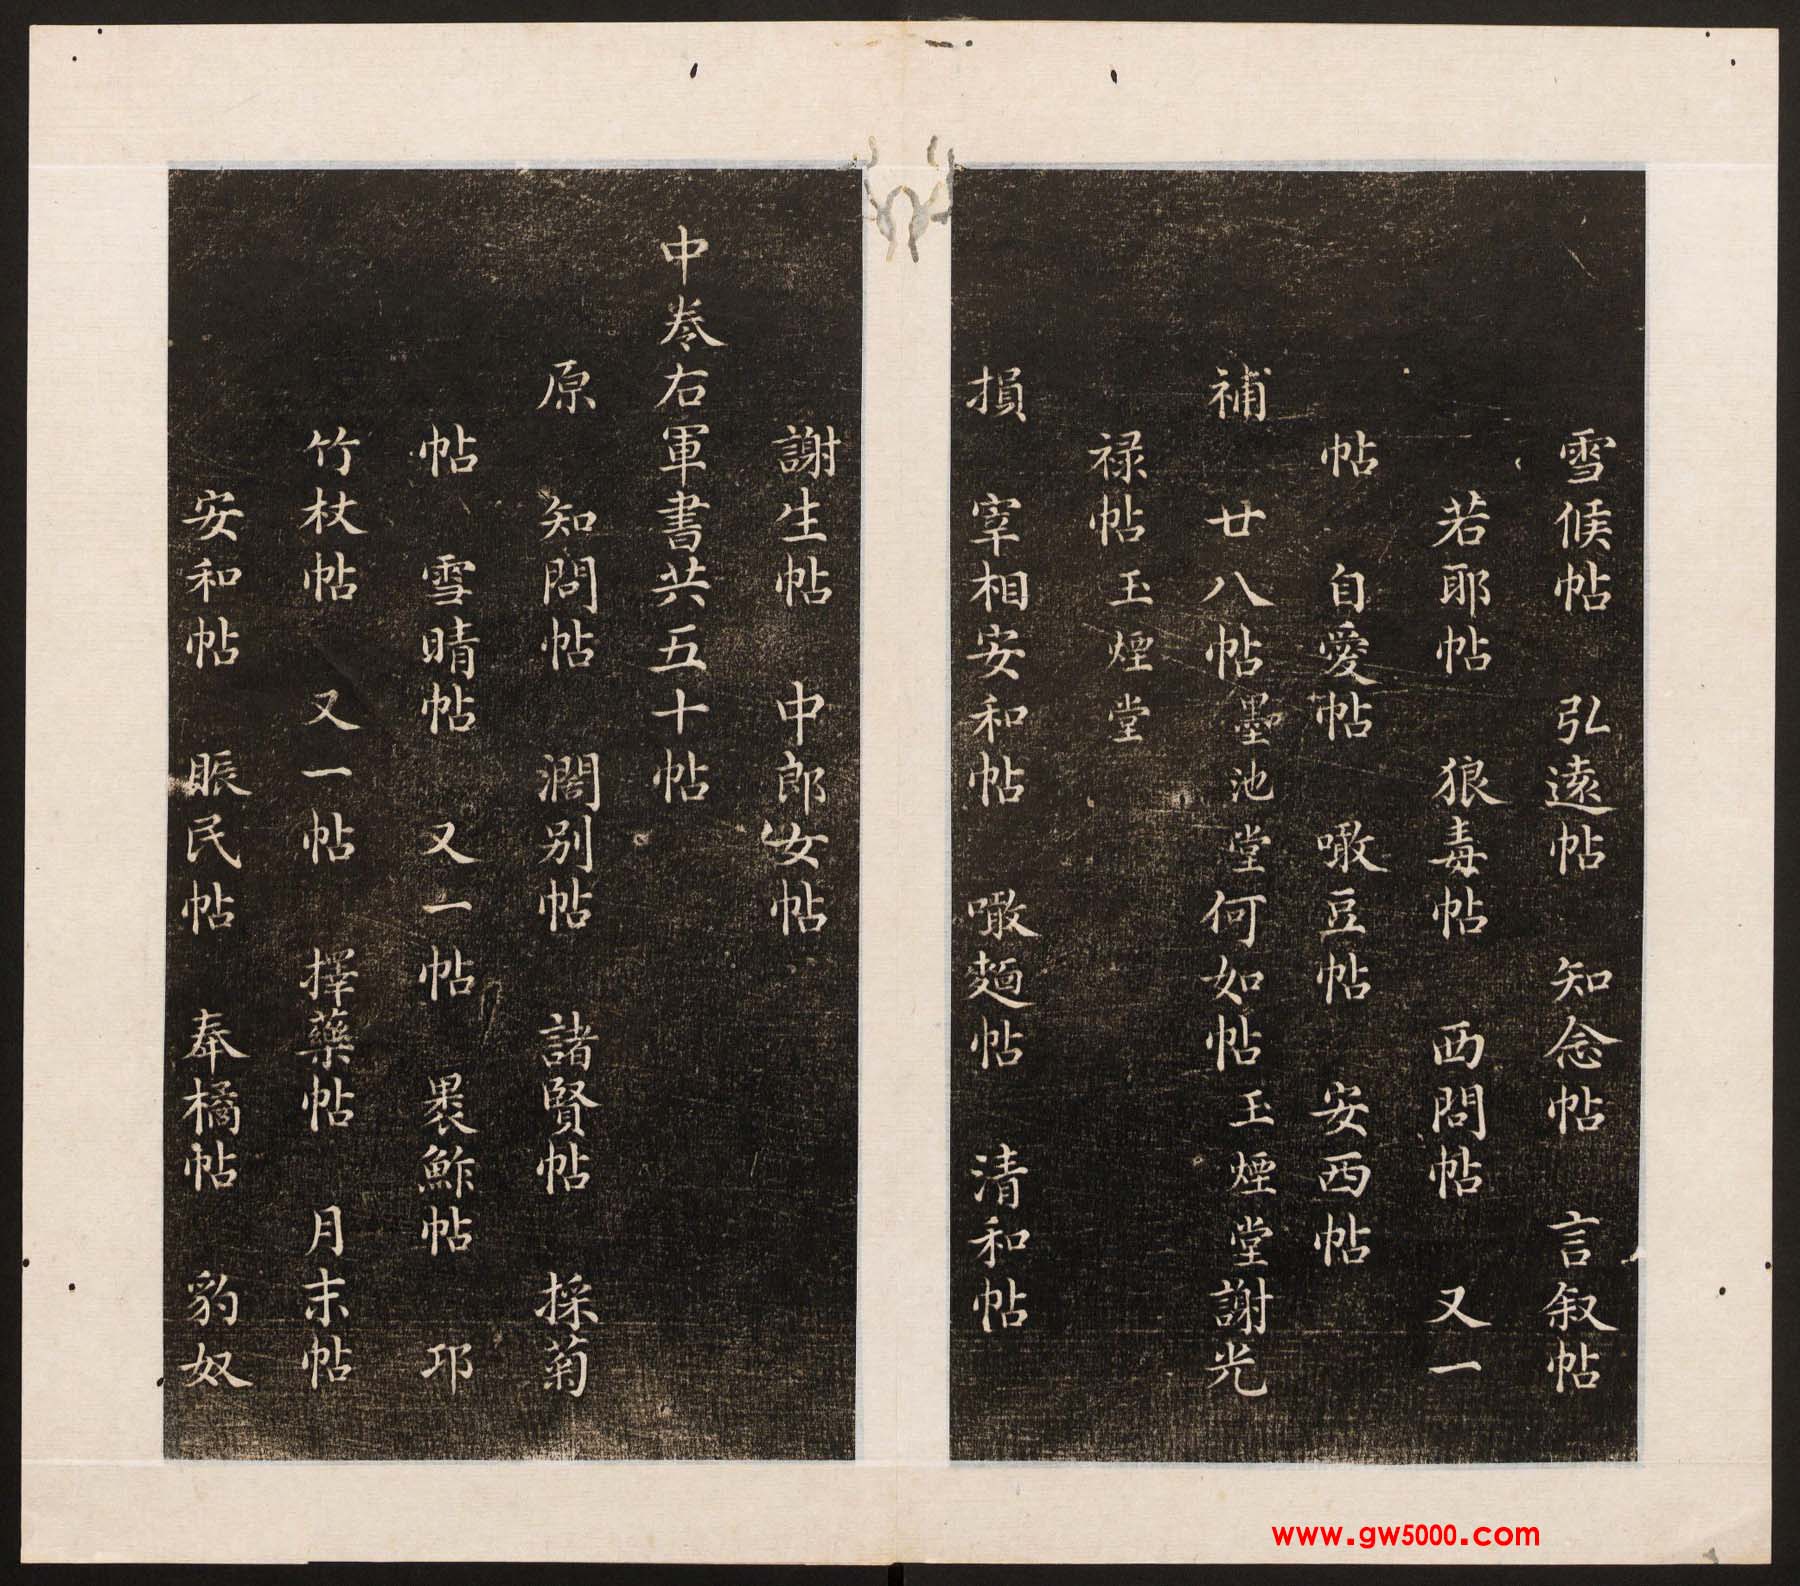 雪候帖　弘遠帖　知念帖　言叙帖
若耶帖　狼毒帖　西問帖　又一
帖　自愛帖　噉豆帖　安西帖
補　廿八帖墨池堂何如帖玉煙堂謝光
禄帖玉煙堂
損　宰相安和帖　噉麪帖　清和帖
謝生帖　中郎女帖
中卷右軍書共五十帖
原　知問帖　濶别帖　諸賢帖　採菊
帖　雪晴帖　又一帖　裹鮓帖　邛
竹杖帖　又一帖　擇藥帖　月末帖
安和帖　賑民帖　奉橘帖　豹奴
www.gw5000.com